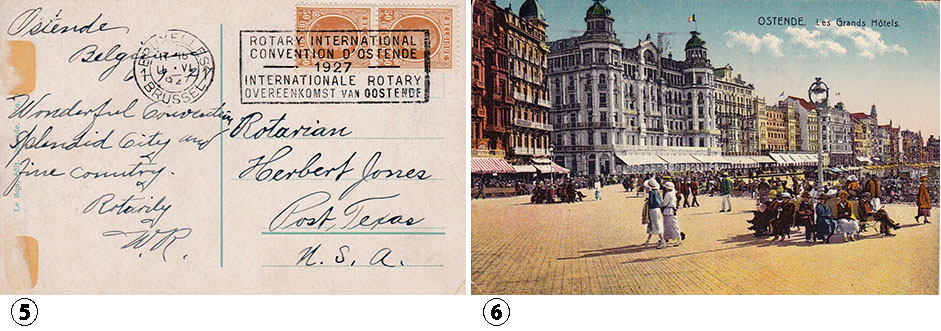 Ostende
Belgium
BRUXELLES
1927
BRUSSEL
ROTARY INTERNATIONAL
CONVENTION D'OSTENDE
1927
INTERNATIONALE ROTARY
OVEREENKOMST VAN OOSTENDE
Wonderful Convention
Splendid City and
fine country.
Rotarily
W.R.
Rotarian
Herbert Jones
Post, Texas
U.S.A.
5
OSTENDE. Les Grands Hôtels.
6